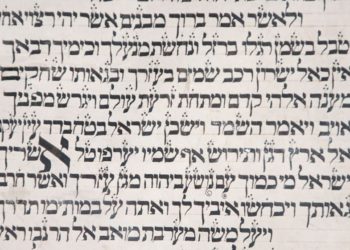 ולאשר אמר ברוך מבנים אשר יהי רצוי אח
טבל בשמן רגלו ברזל ונחשת מנעלך וכימיך דבאך
אין כאל ישרון רכב שמים בעזרך ובגאותו שחקים
מענה אלהי קדם ומתחת זרעת עולם ויגרש מפניך
אויב ויאמר השמד וישכן ישראל בטח בדד עין
אל ארץ דגן ותירוש אף שמיו יערפו טל אשרי
ישראל מי כמוך עם נושע ביהוה מגן עזרך ואשר חרב
גאותך ויכחשו איביך לך ואתה על במותימו תדר
ויעל משה מערבת מואב אל הר נבו ראש